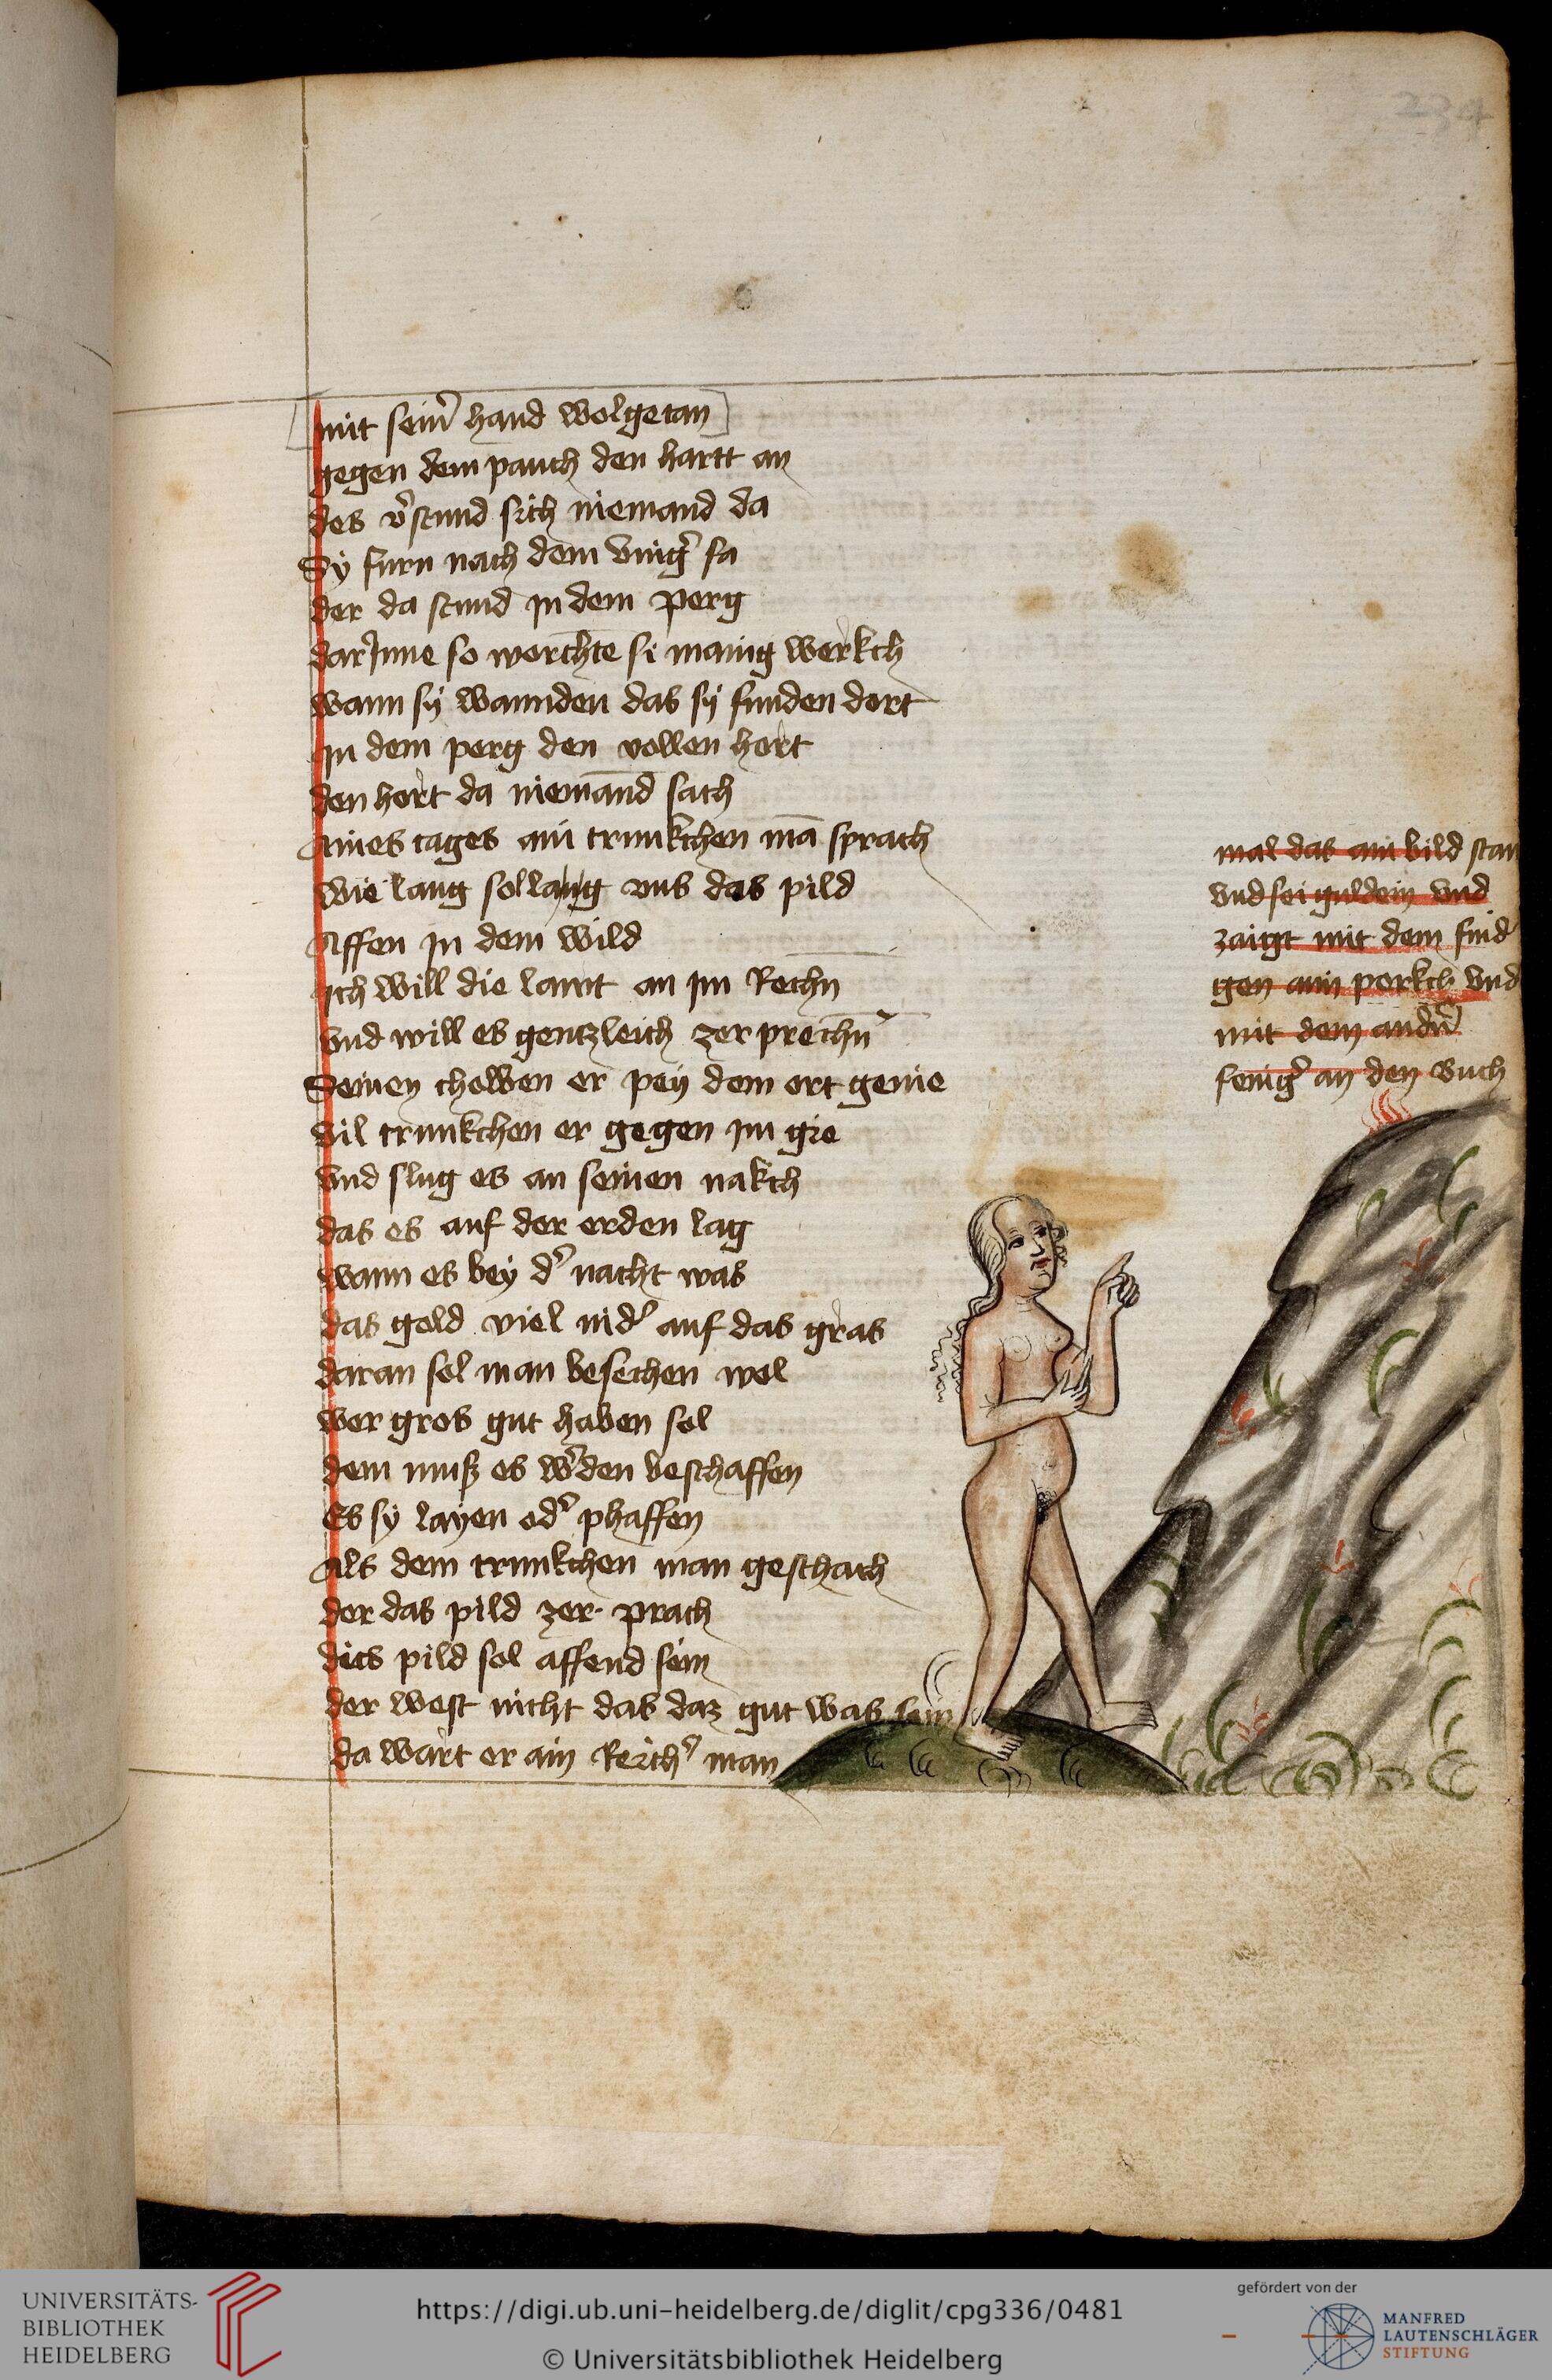 234
mit sein̄ hand wolgetan
gegen dem pauch den hartt an
des v̓stund sich niemand da
Sÿ furn nach dem vinḡ sa
der da stund jn dem perg
darjnne so worchte si manig werkch
wann sÿ wannden das sÿ funden dort
jn dem perg den vollen hort
den hort da niemand sach
Aines tages ain trunkchen mā sprach
wie lang sol lang vns das pild
Affen jn dem wild
jch will die lawt an jm Rechn̄
vnd will es gentzleich zerprechn̄
Seinen cholben er peÿ dem ort genie
vil trunkchen er gegen jm gie
vnd slug es an seinen nakch
das es auf der erden lag
wann es beÿ d̓ nacht was
das gold viel nid̓ auf das gras
daran sol man besechen wol
wer gros gut haben sol
dem muß es w̓den beschaffen
Es sÿ layen od̓ phaffen
Als dem trunkchen man geschach
der das pild zer prach
dics pild sol affend sein
der west nicht das daz gut was sein
da wart er ain Reich̓ man
mal das ain bild stan
vnd sei guldein vnd
zaigt mit dem find̓
gen aim perkch vnd
mit dem andn̄
fenig̓ an den buch
UNIVERSITÄTS-
BIBLIOTHEK
HEIDELBERG
https://digi.ub.uni-heidelberg.de/diglit/cpg336/0481
© Universitätsbibliothek Heidelberg
gefördert von der
MANFRED
LAUTENSCHLÄGER
STIFTUNG